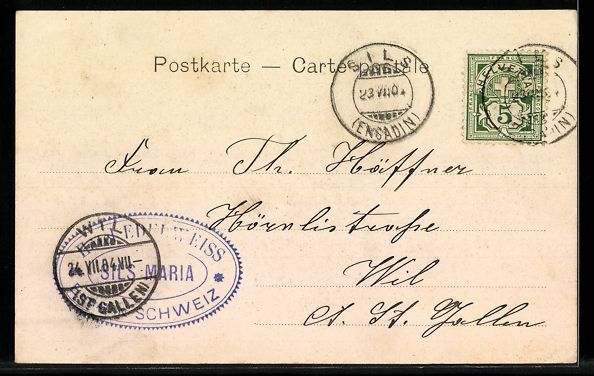 Postkarte — Carte postale
SILS
23 VII 04
(ENGADIN)
HELVETIA
5
SILS
(ENGADIN)
Frau Th. Häffner
Hörnlistraße
Wil
Ct. St. Gallen
WIL
24. VII. 04. VII-
(ST. GALLEN)
EDELWEISS
SILS-MARIA
SCHWEIZ